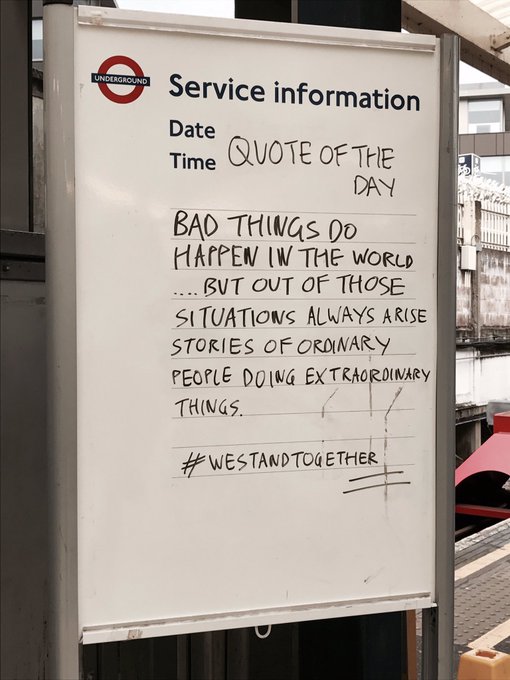 UNDERGROUND
Service information
Date
Time QUOTE OF THE
DAY
BAD THINGS DO
HAPPEN IN THE WORLD
....BUT OUT OF THOSE
SITUATIONS ALWAYS ARISE
STORIES OF ORDINARY
PEOPLE DOING EXTRAORDINARY
THINGS.
#WESTANDTOGETHER